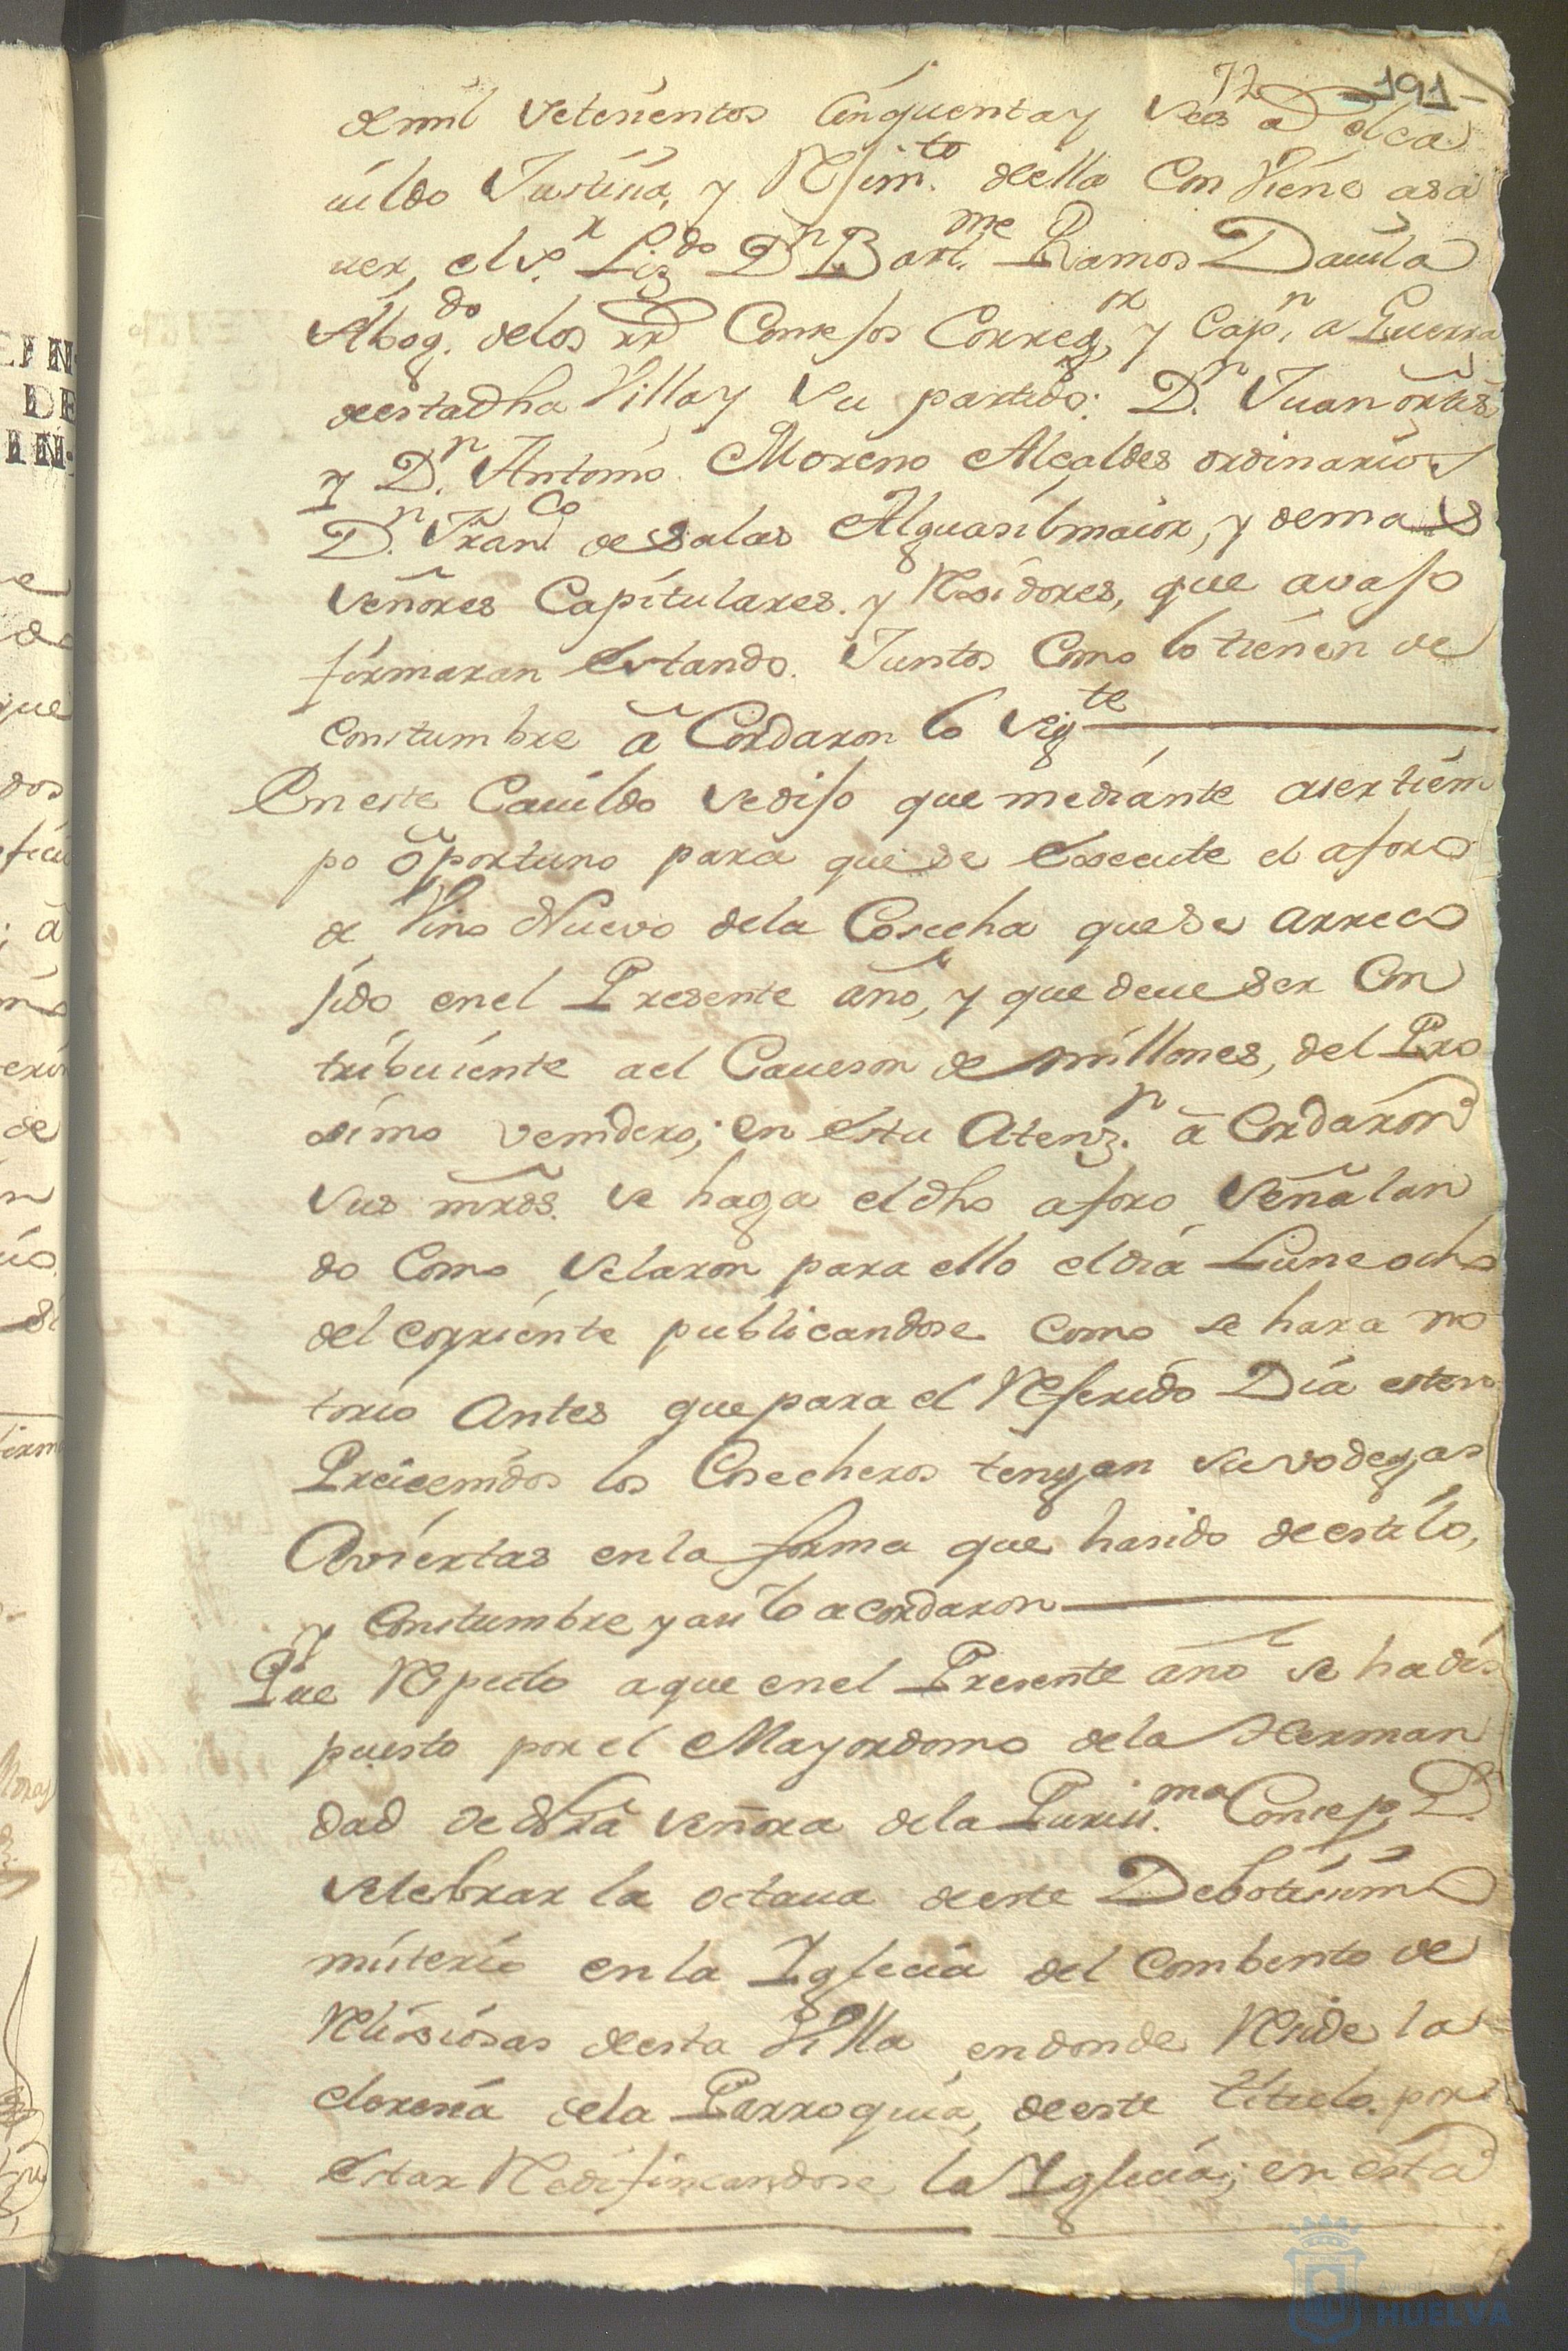 72 191
de mil setesientos sinquenta y seis a D el Ca
uildo Justisia, y Rejim.to de ella Combiene asa
uer, el s.r Liz.do D.n Bart.me Ramos Dauila
Abog.do de los rr.s Consejos Correg.r y Cap.n a Guerra
de esta dha Villa y su partido: D.n Juan ortis
y D.n Antonio Moreno Alcaldes ordinarios
D.n Fran.co de salas Alguasil maior, y demas
señores Capitulares y Rexidores, que avajo
firmaran estando Juntos Como lo tienen de
constumbre a Cordaron lo sig.te
En este Cauildo se dijo que mediante aser tiem
po oportuno para que se execute el aforo
de Vino Nuevo de la Cosecha que se arreco
jido en el Presente año, y que deue ser Con
tribuiente a el Caueson de millones, del Pro
simo venidero; en esta Atenz.n a Cordaron
sus mrds. se haga el dho aforo señalan
do Como selaron para ello el dia Lune ocho
del corriente publicandose como se hara no
torio Antes que para el Referido Dia esten
Preuenidos los Cosecheros tengan su vodegas
Aviertas en la forma que hasido de estilo,
y Constumbre y asi lo acordaron
Que Respecto a que en el Presente año se ha dis
puesto por el Mayordomo de la Herman
dad de Nra señora de la Puriss.ma Concep.n
selebrar la octaua de este Debotisimo
misterio en la Iglecia del Combento de
Relixiosas de esta Villa en donde Reside la
cleresia de la Parroquia, de este titulo por
estar Redificandose la Iglecia; en esta
HUELVA